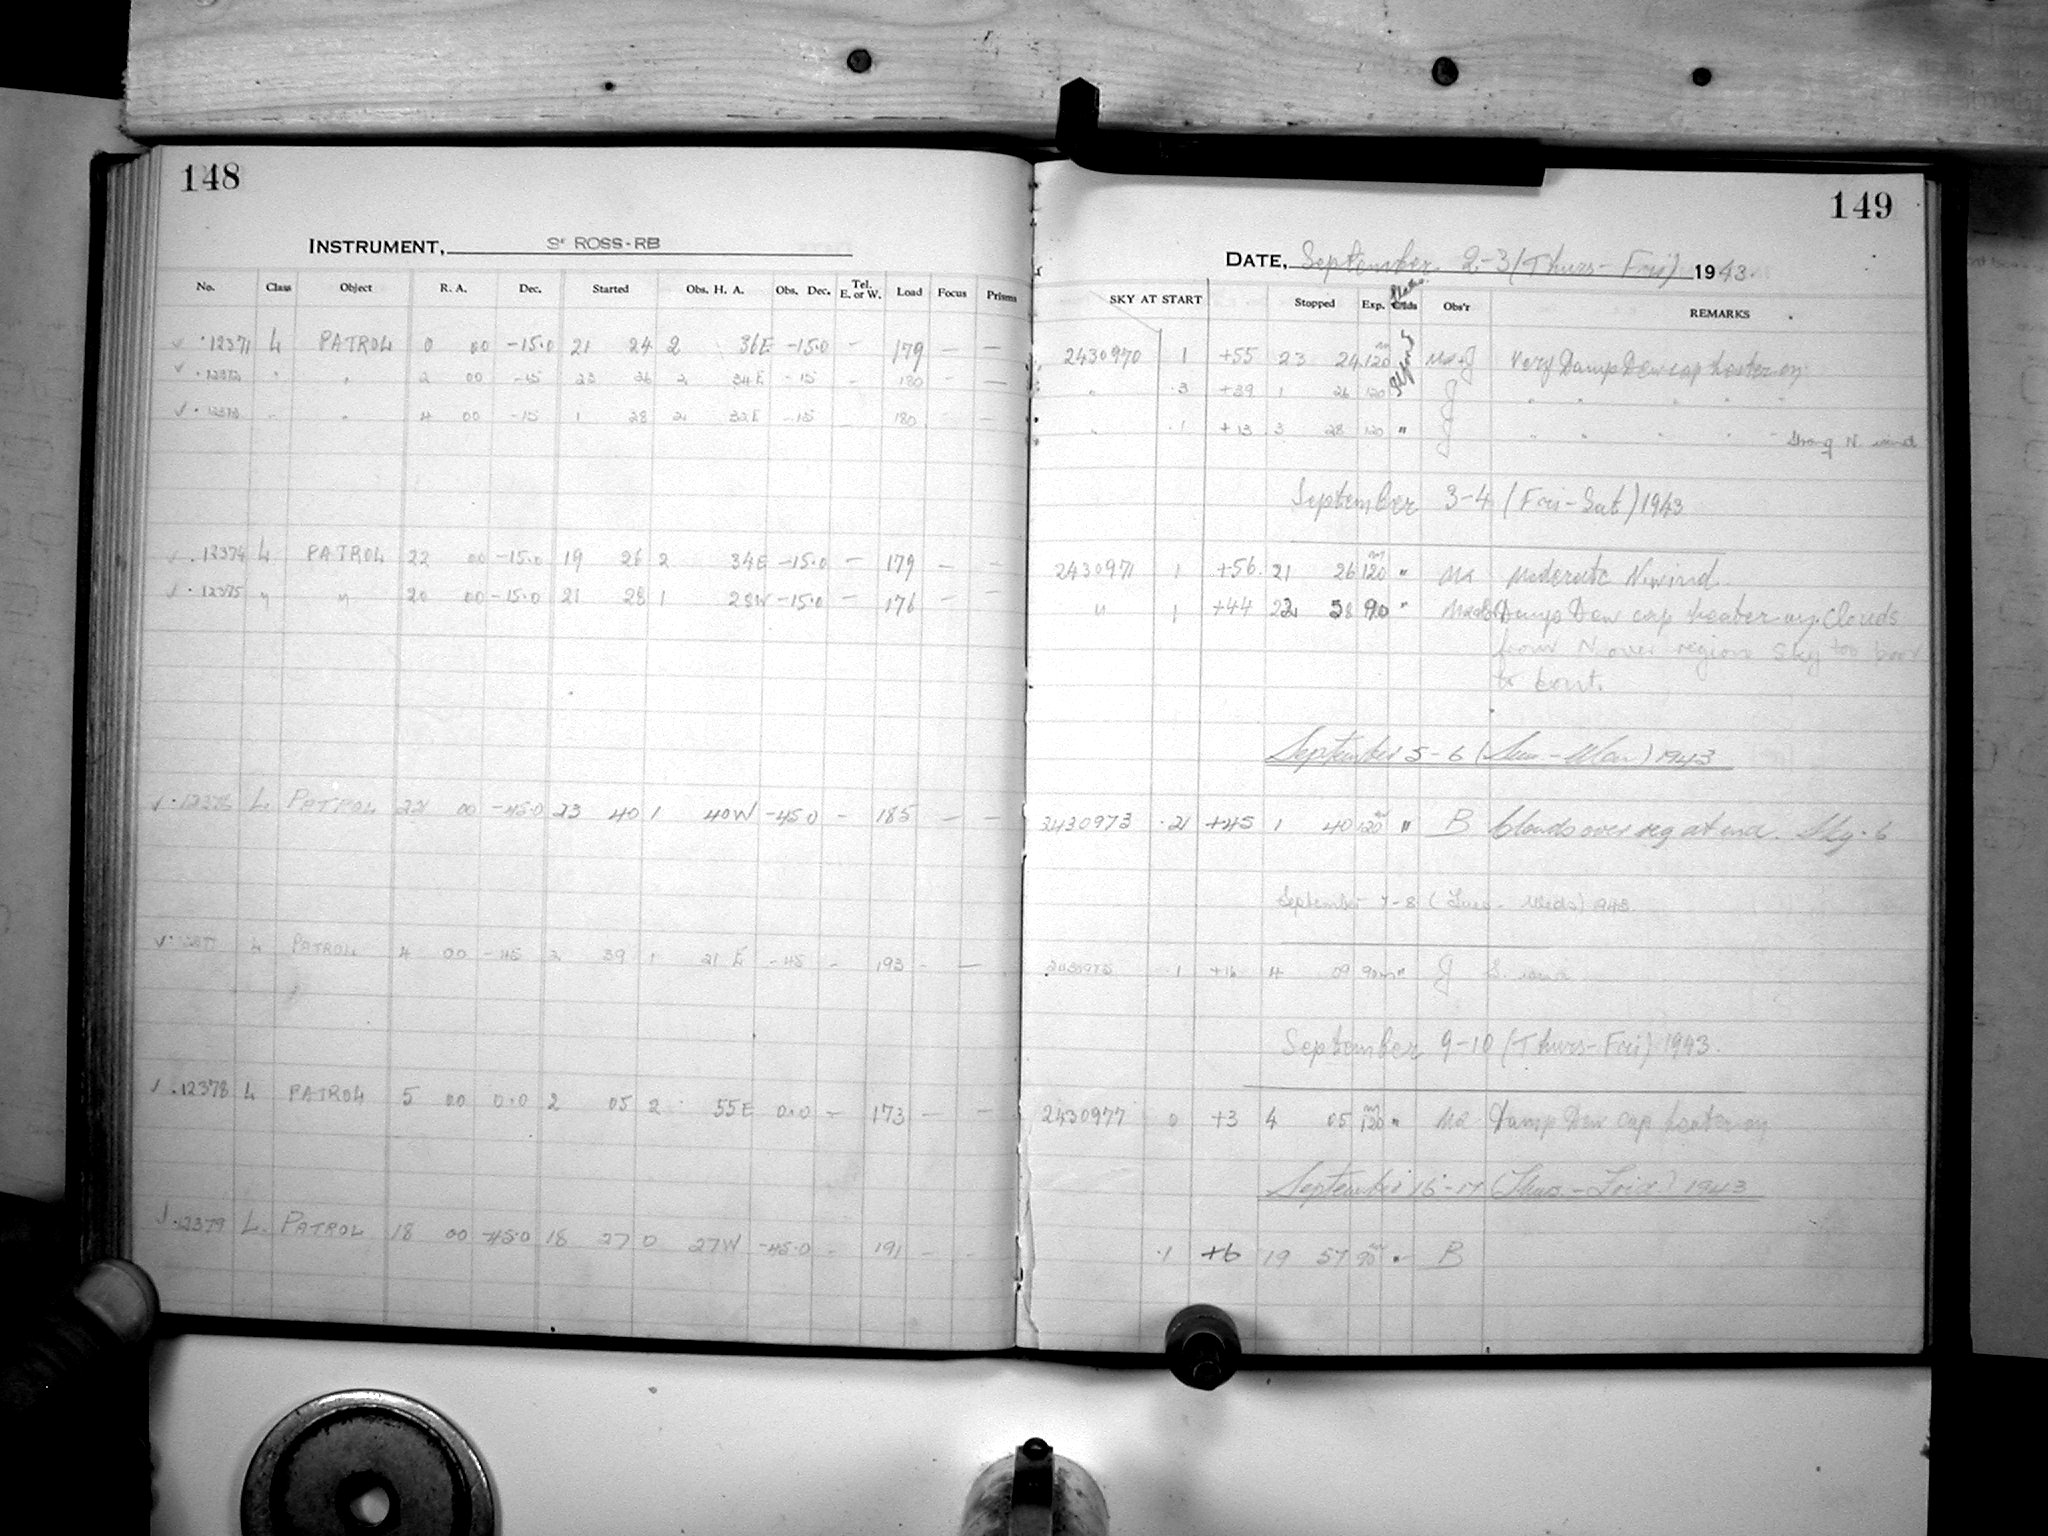 148
INSTRUMENT, S' ROSS-RB
No. Class Object R. A. Dec. Started Obs. H. A. Obs. Dec. Tel. E. or W. Load Focus Prisms
12371 L PATROL 0 00 -15.0 21 24 2 36E -15.0 - 179 - -
12372 " " 2 00 -15 23 26 2 34E -15 - 180 - -
12373 " " 4 00 -15 1 28 2 32E -15 180 - -
12374 L PATROL 22 00 -15.0 19 26 2 34E -15.0 - 179 - -
12375 " " 20 00 -15.0 21 28 1 28W -15.0 - 176 - -
12376 L. PATROL 22 00 -45.0 23 40 1 40W -45.0 - 185 - -
L PATROL 4 00 -45 2 39 1 21 E -45 - 193 - -
12378 L PATROL 5 00 0.0 2 05 2 55E 0.0 - 173 - -
12379 L. PATROL 18 00 -45.0 18 27 0 27W -45.0 - 191 - -
149
DATE, September 2-3 (Thurs-Fri) 1943.
SKY AT START Stopped Exp. Obs'r REMARKS
2430970 1 +55 23 24 120m Very Damp Dew cap heater on
" .3 +39 1 26 120 J " " " " "
" .1 +13 3 28 120 " J " " " " " Strong N. wind
September 3-4 (Fri-Sat) 1943
2430971 1 +56. 21 26 120m " Moderate N wind
" 1 +44 22 58 90 " Damp Dew cap heater on. Clouds
from N over region Sky too poor
to cont.
September 5-6 (Sun-Mon) 1943
2430973 .2 +45 1 40 120m " B Clouds over reg at end. Sky .6
September 7-8 (Tues - Weds) 1943
2430975 .1 +16 4 09 90m " J S. wind
September 9-10 (Thurs-Fri) 1943.
2430977 0 +3 4 05 120m " Damp Dew cap heater on
September 16-17 (Thurs-Frid) 1943
.1 +6 19 57 90m " B